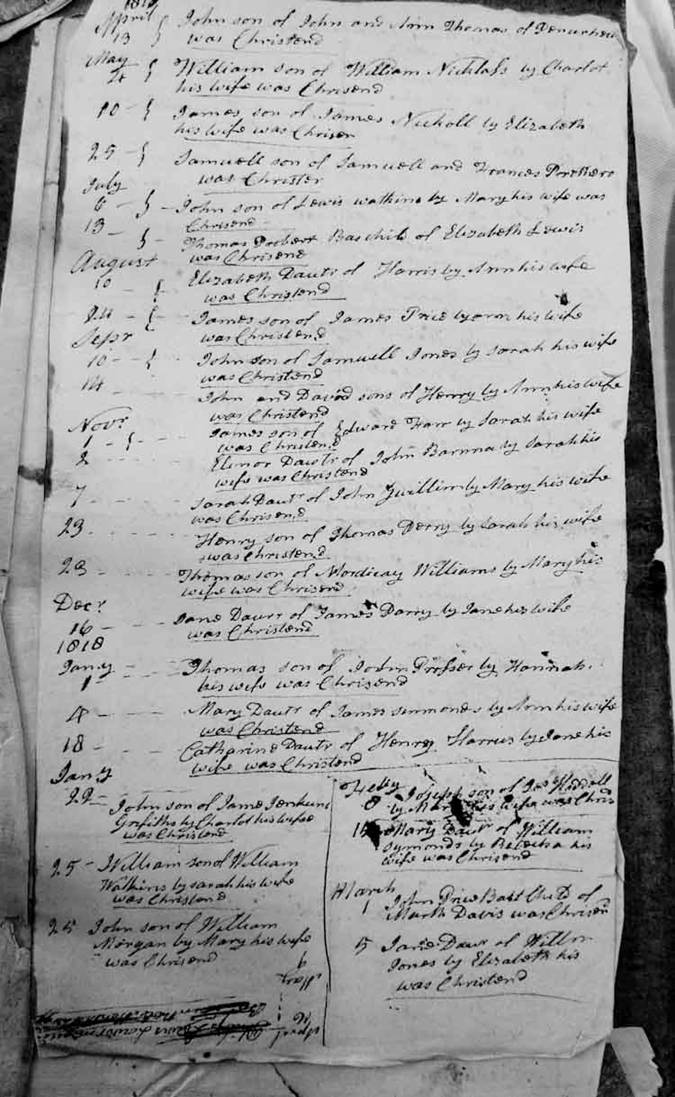 April
13 } John son of John and Ann Thomas of
was Christend
May
4 } William son of William Nichlass by Charlot
his wife was Chrisend
10 - } James son of James Nicholl by Elizabeth
his wife was Chrisen
25 - } Samuell son of Samuell and Frances Prothero
was Christen
July
6 - } - John son of Lewis watkins by Mary his wife was
Chrisend
13 - } Thomas Probert Baschild of Elizabeth Lewis
was Chrisend
August
10 - { Elizabeth Dautr of Harris by Ann his wife
was Christend
24 - { James son of James Price by ann his wife
Sepr was Christend
10 - - { John son of Samwell Jones by Sarah his wife
was Christend
14 - - John and David sons of Henry by Ann his wife
was Christend
Novr
1 - { - - James son of Edward Farr by Sarah his wife
was Christend
2 - - - Elinor Dautr of John by Sarah his
wife was Christend
7 - - - Sarah Dautr of John Gwillim by Mary his wife
was Chrisend
23 - - - - Henry son of Thomas Perry by Sarah his wife
was Christend
23 - - - - Thomas son of Mordicay Williams by Mary his
wife was Chrisend
Decr
16 - - - Jane Dautr of James Darry by Jane his wife
was Christend
1818
Jany
1 - - - Thomas son of John Prosser by Hannah
his wife was Chrisend
4 - - - Mary Dautr of James simmonds by Ann his wife
was Christend
18 - - - Catharine Dautr of Henry Harris by Jane his
wife was Christend
Jany
22 - John son of Jame Jenkins
Griffiths by Charlot his wife
was Christend
25 - William son of William
Watkins by Sarah his wife
was Christend
25 John son of William
Morgan by Mary his wife
was Chrisend
Feby
8 Joseph son of Jas
by Mary his wife was Chris
15 Mary Dautr of William
Symonds by his
wife was Chrisend
March
1 John Price Bast Child of
Davis was Chrisen
5 Jane Dautr of Willm
Jones by Elizabeth his
was Christend